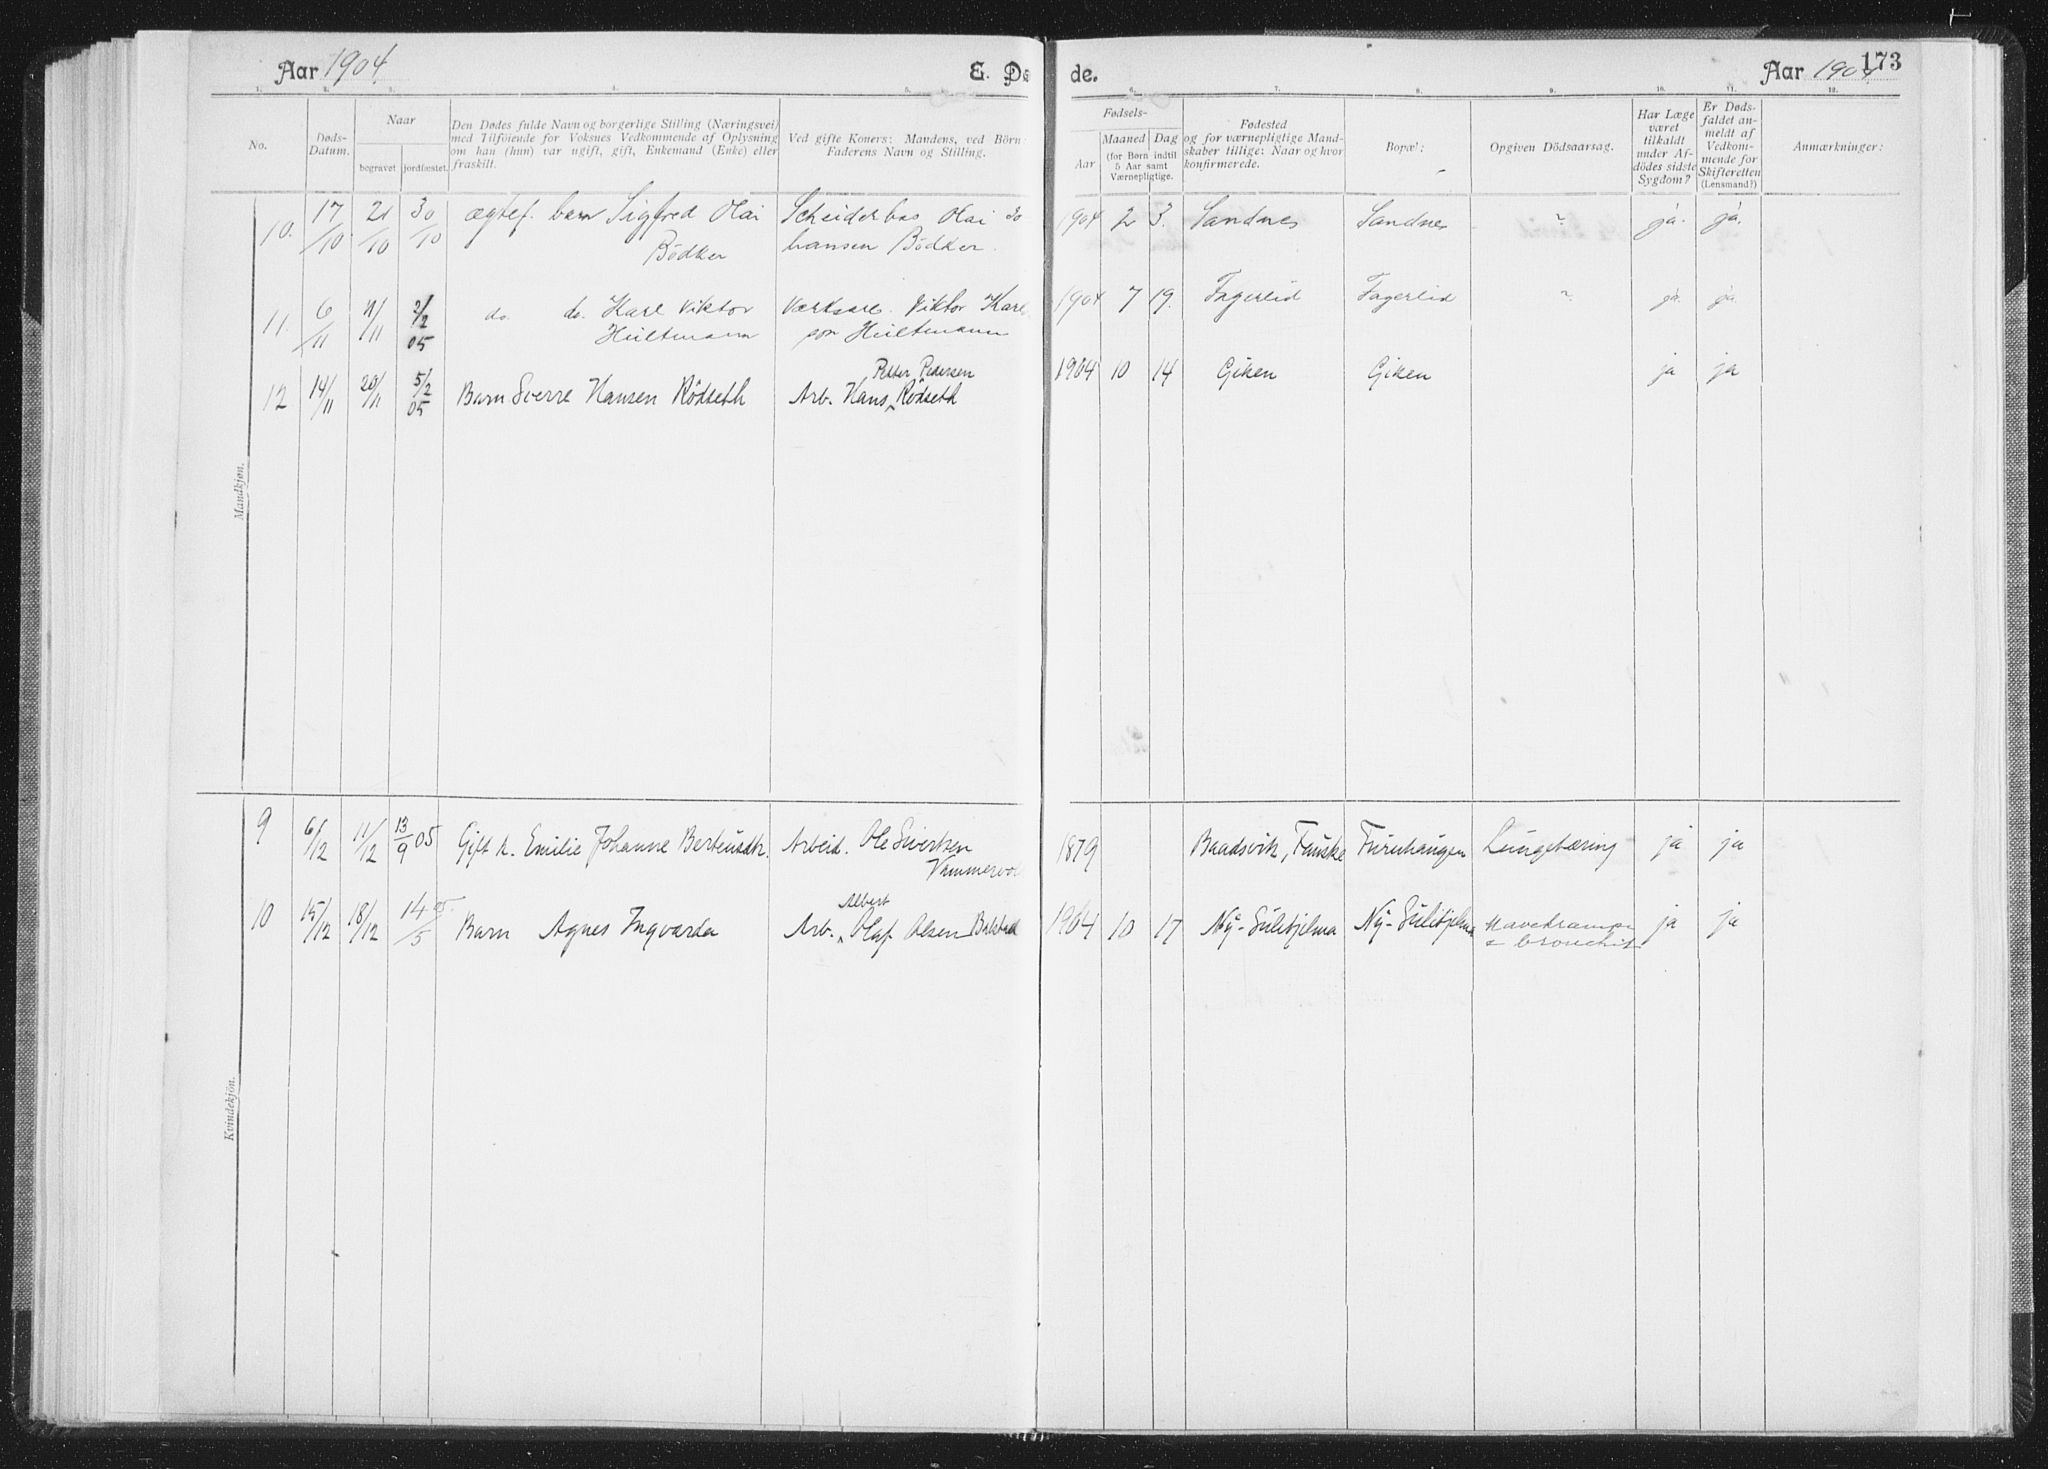 Aar 1904
E. Dø
de.
Aar 1904
173
1. 2. 3. 4. 5. 6. 7. 8. 9. 10. 11. 12.
No.
Døds-
Datum.
Naar
begravet
jordfæstet.
Den Dødes fulde Navn og borgerlige Stilling (Næringsvei)
med Tilföiende for Voksnes Vedkommende af Oplysning
om han (hun) var ugift, gift, Enkemand (Enke) eller
fraskilt.
Ved gifte Koners: Mandens, ved Börn:
Faderens Navn og Stilling.
Fødsels-
Aar
Maaned
Dag
(for Børn indtil
5 Aar samt
Værnepligtige.
Fødested
og for værnepligtige Mand-
skaber tillige: Naar og hvor
konfirmerede.
Bopæl:
Opgiven Dödsaarsag.
Har Læge
været
tilkaldt
under Af-
dödes sidste
Sygdom?
Er Døds-
faldet an-
meldt af
Vedkom-
mende for
Skifteretten
(Lensmand?)
Anmærkninger:
Mandkjøn.
10. 17/10 21/10 30/10 ægtef. barn Sigfred Olai Scheiderbas Olai Jo 1904 2 3. Sandnes Sandnes ~ ja. ja.
Bödker hansen Bödker.
11. 6/11 11/11 2/2 05 do. do. Karl Viktor Værksarb. Viktor Karl 1904 7 19. Fagerlid Fagerlid ~ ja. ja
Hultmann son Hultmann
Petter Pedersen
12 14/11 20/11 5/2 05 Barn Sverre Hansen Rödseth Arb. Hans Rödseth 1904 10 14 Giken Giken ja ja
Kvindekjön.
9 6/12 11/12 13/9 05 Gift k. Emilie Johanne Berteusdtr. Arbeid. Ole Sivertsen 1879 Baadsvik, Fauske Furuhaugen Lungetæring ja ja
Albert
10 15/12 18/12 14/5 05. Barn Agnes Ingvarda Arb. Olaf Olsen 1904 10 17 Ny-Sulitjelma Ny-Sulitjelma Mavekrampe ja ja
& bronchit